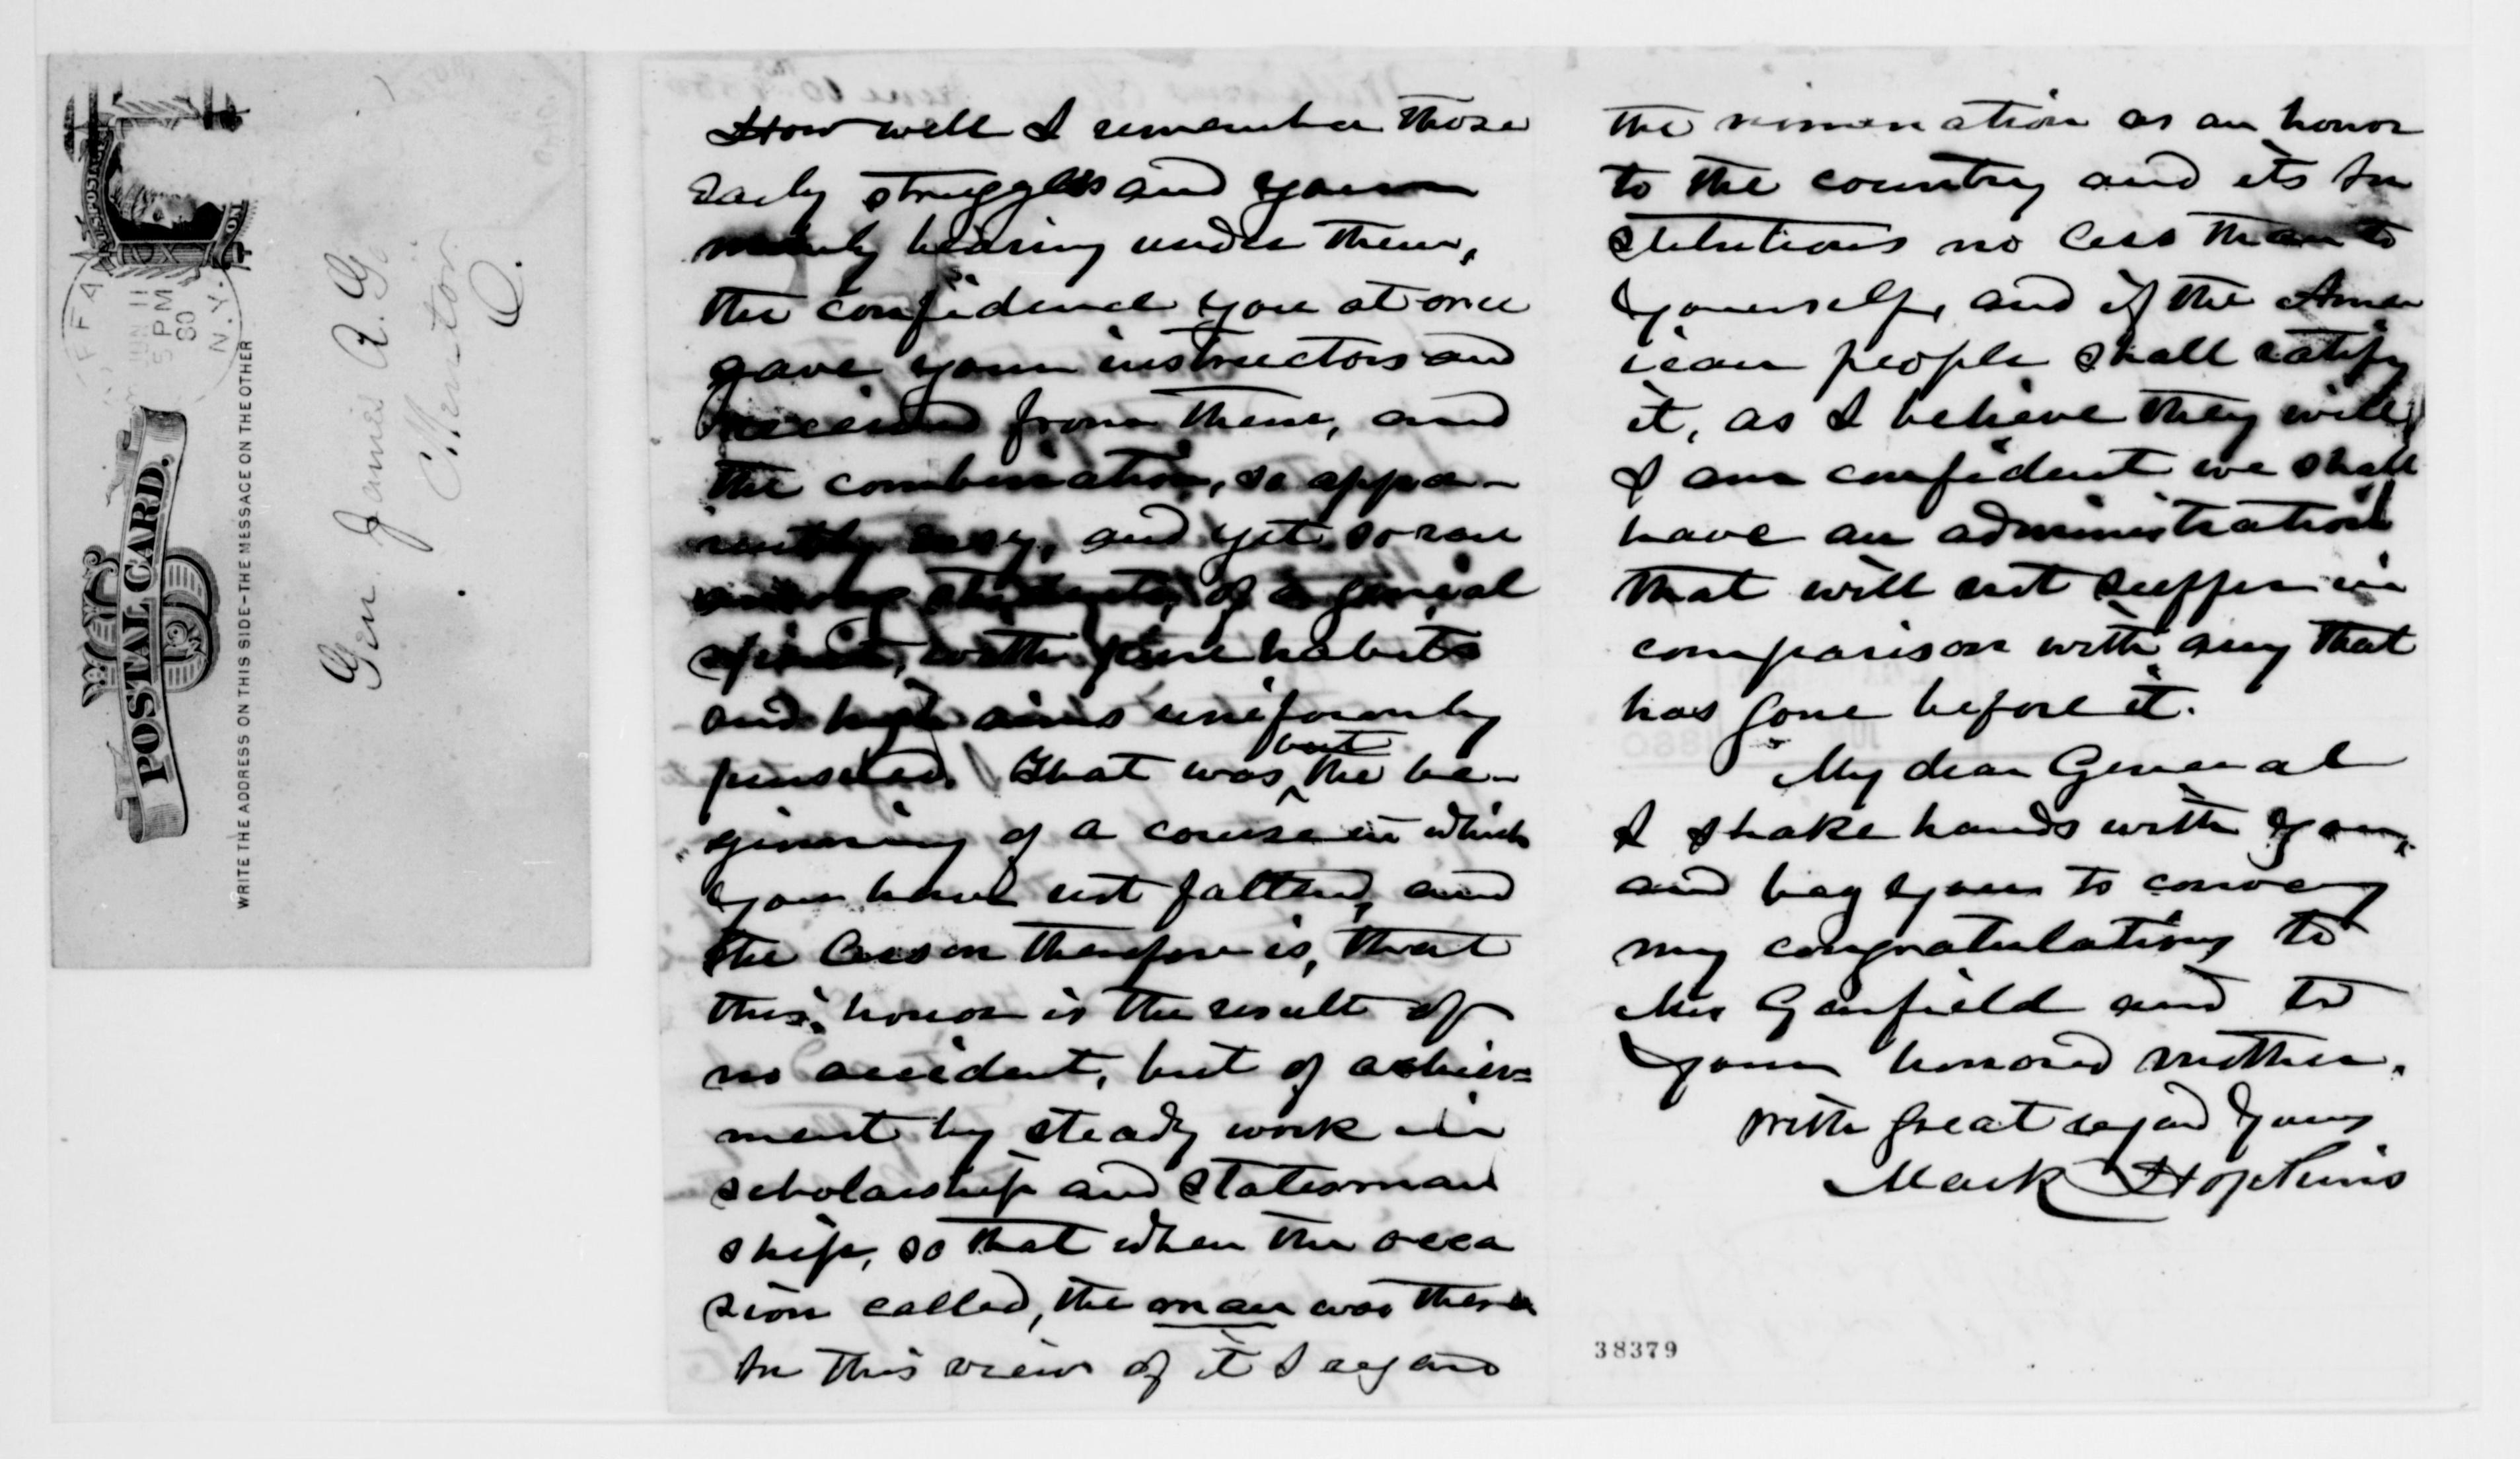 POSTAL CARD.
WRITE THE ADDRESS ON THIS SIDE-THE MESSAGE ON THE OTHER
JUN 11
5 PM
80
N.Y.
Gen. James A. G.
Mentor
O.
How well I remember those
early struggles and your
manly bearing under them,
the confidence you at once
gave your instructors and
received from them, and
the combination, so appa-
rently easy, and yet so rare
among students, of a genial
spirit, with pure habits
and high aims uniformly
pursued. That was but the be-
ginning of a course in which
you have not faltered, and
the lesson therefore is, that
this honor is the result of
no accident, but of achiev=
ment by steady work in
scholarship and statesman
ship, so that when the occa
sion called, the man was there
In this view of it I regard
the nomination as an honor
to the country and its In
stitutions no less than to
yourself, and if the Amer
ican people shall ratify
it, as I believe they will,
I am confident we shall
have an administration
that will not suffer in
comparison with any that
has gone before it.
My dear General
I shake hands with you,
and beg you to convey
my congratulations to
Mrs Garfield and to
your honored mother.
With great regard Yours
Mark Hopkins
38379